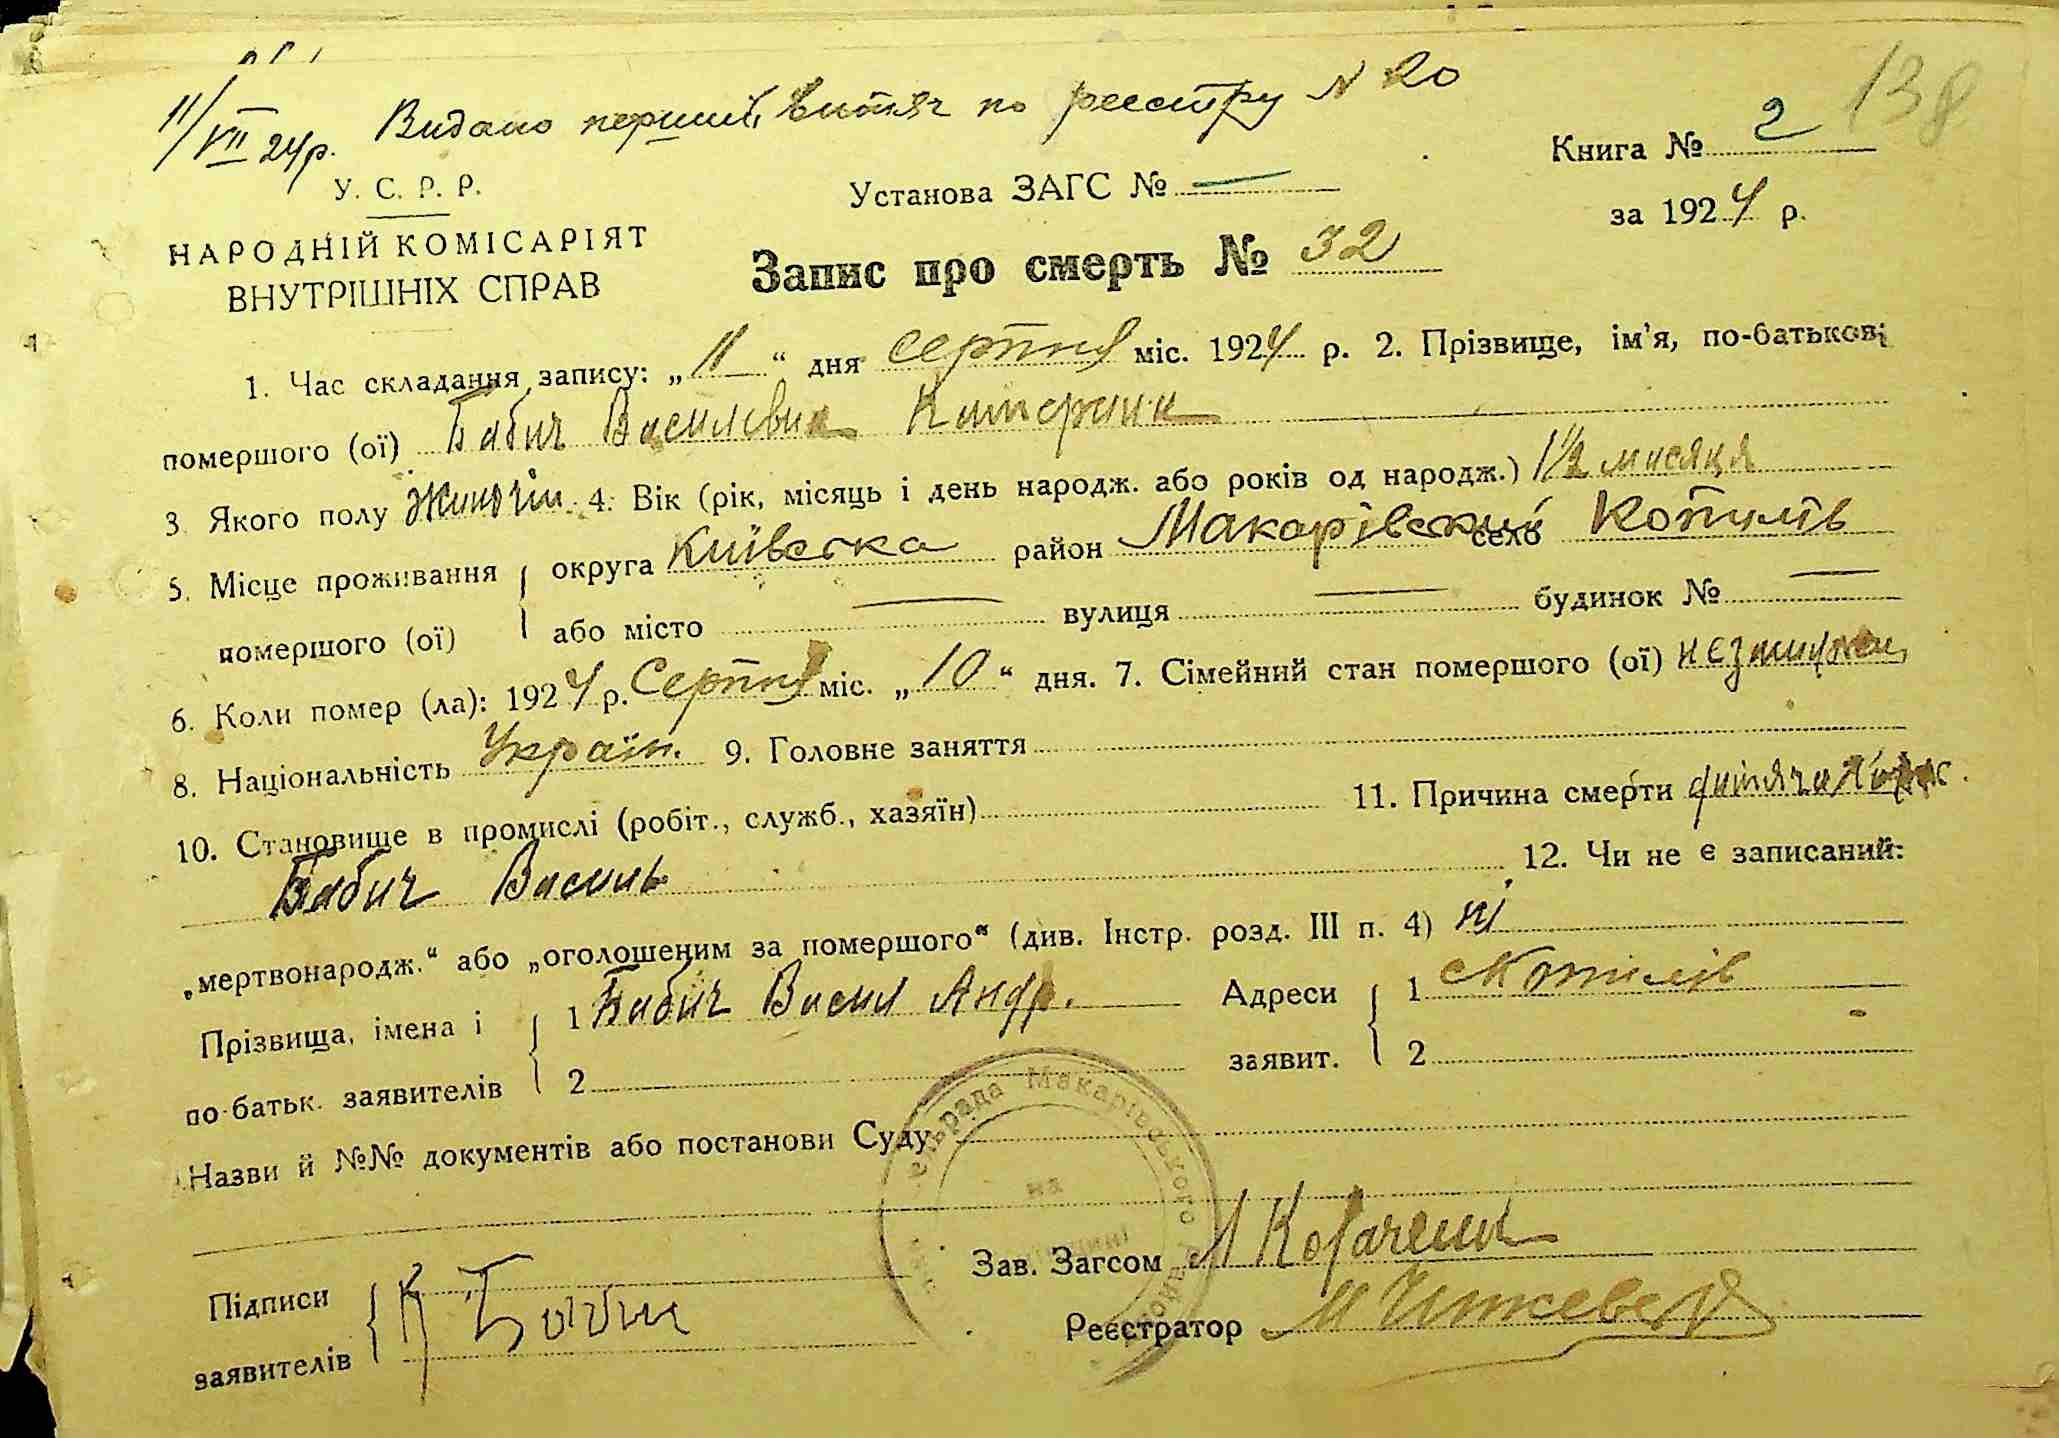 11/VII 24р. Видано перший витяг по реєстру N 20
138
Книга № 2
У. С. Р. Р.
Установа ЗАГС № —
за 1924 р.
НАРОДНІЙ КОМІСАРІЯТ
ВНУТРІШНІХ СПРАВ
Запис про смерть № 32
1. Час складання запису: „11“ дня серпня міс. 1924 р. 2. Прізвище, ім'я, по-батькові
помершого (ої) Бабич Василевна Катерина
3. Якого полу 4. Вік (рік, місяць і день народж. або років од народж.) 1½ мисяця
5. Місце проживання округа Київська район Макарівский село Котилів
помершого (ої) або місто — вулиця — будинок № —
6. Коли помер (ла): 1924 р. Серпня міс. „10“ дня. 7. Сімейний стан помершого (ої)
8. Національність Україн. 9. Головне заняття
10. Становище в промислі (робіт., служб., хазяїн) 11. Причина смерти
Бабич Василь 12. Чи не є записаний:
„мертвонародж.“ або „оголошеним за помершого“ (див. Інстр. розд. III п. 4) ні
Прізвища, імена і 1 Бабич Васил Андр. Адреси 1 с Котилів
по-батьк. заявителів 2 заявит. 2
Назви й №№ документів або постанови Суду
сельрада Макарівського району
на
Зав. Загсом
Підписи
Реєстратор
заявителів